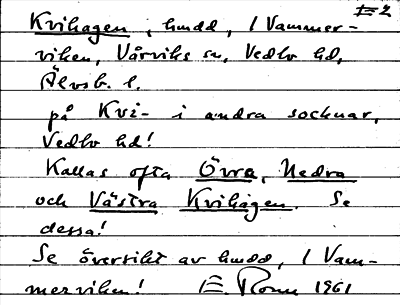 E2
Kvihagen, hmdd, / Vammer-
viken, Vårviks sn, Vedbo hd,
Älvsb. l.
på Kvi- i andra socknar,
Vedbo hd!
Kallas ofta Övra, Nedra
och Västra Kvihagen. Se
dessa!
Se översikt av hmdd, / Vam-
merviken! E. Ronn 1961